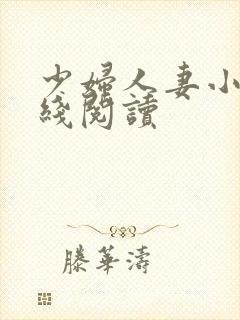 少婦人妻小
綫閱讀
滕華濤